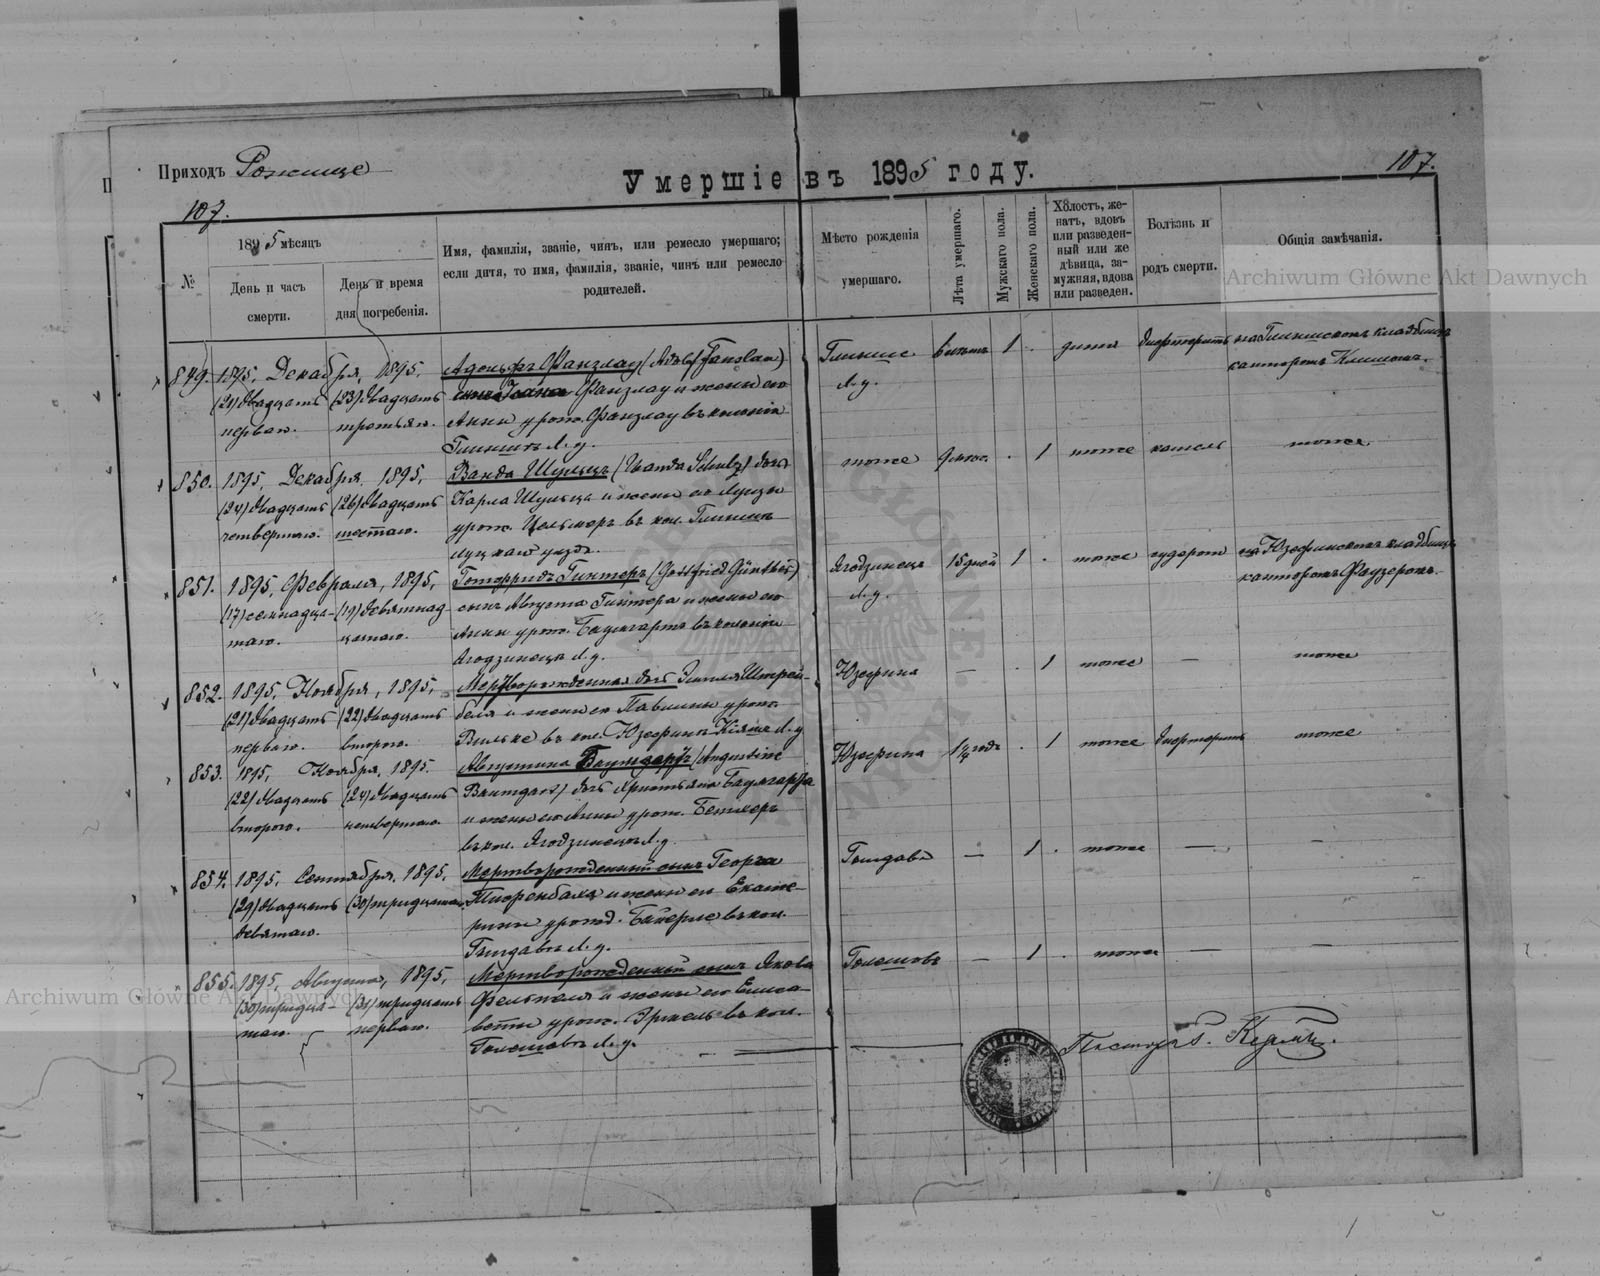 Приходъ Рожище
Умершіе въ 1895 году.
107.
107.
№
1895 мѣсяцъ
День и часъ смерти.
День и время дня погребенія.
Имя, фамилія, званіе, чинъ, или ремесло умершаго;
если дитя, то имя, фамилія, званіе, чинъ или ремесло
родителей.
Мѣсто рожденія
умершаго.
Лѣта умершаго.
Мужскаго пола.
Женскаго пола.
Холостъ, же-
натъ, вдовъ
или разведен-
ный или же
дѣвица, за-
мужняя, вдова
или разведен.
Болѣзнь и
родъ смерти.
Общія замѣчанія.
Archiwum Główne Akt Dawnych
849. 1895, Декабря, 1895.
(21) двадцать
перваго.
(23) двадцать
третьяго.
Адольфъ Фанзлау (Adolf Fanzlau)
Фанзлау и жены его
Анны урож. Фанзлау въ колоніи
Л. у.
Л. у.
1 . дитя
канторомъ
850. 1895, Декабря, 1895,
(24) двадцать
четвертаго.
(26) двадцать
шестаго.
Ванда Шульцъ (Wanda Schulz) дочь
Карла Шульца и жены его Луизы
урож. въ кол.
Луцкаго уѣзда.
тоже
. 1 тоже кашель тоже
851. 1895, Февраля, 1895,
(17) семнадца-
таго.
(19) девятнад
цатаго.
Готфридъ Гинтеръ (Gottfried Günther)
сынъ Августа Гинтера и жены его
Анны урож. Баумгартъ въ колоніи
Ягодзинецъ Л. у.
Ягодзинецъ
Л. у.
15 дней 1 . тоже судороги на Юзефинскомъ кладбищѣ
канторомъ Фаузеромъ.
852. 1895, Ноября, 1895,
(21) двадцать
перваго.
(22) двадцать
второго.
Мертворожденная дочь Штрей-
беля и жены его Павлины урож.
Вильке въ кол. Юзефинъ Л. у
Юзефина — . 1 тоже — тоже
853. 1895, Ноября, 1895.
(22) двадцать
второго.
(24) двадцать
четвертаго.
Августина Баумгартъ (Augustine
Baumgart) дочь Христьяна Баумгарта
и жены его Анны урож. Бетхеръ
въ кол. Ягодзинецъ Л. у.
Юзефина 1¼ годъ . 1 тоже дифтеритъ тоже
854. 1895, Сентября, 1895,
(29) двадцать
девятаго.
(30) тридцатаго
Мертворожденный сынъ Георга
и жены его Екате-
рины урожд. въ кол.
Л. у.
— 1 . тоже — —
855. 1895, Августа, 1895,
(30) тридца-
таго.
(31) тридцать
перваго.
Мертворожденный сынъ Якова
и жены его Елиса-
веты урож. въ кол.
Голешовъ Л. у.
Голешовъ — 1 . тоже — —
Archiwum Główne Akt Dawnych
Пасторъ